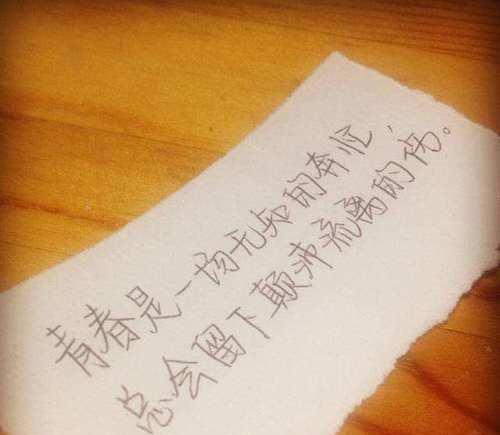 青春是一场无知的奔忙，
总会留下颠沛流离的伤。